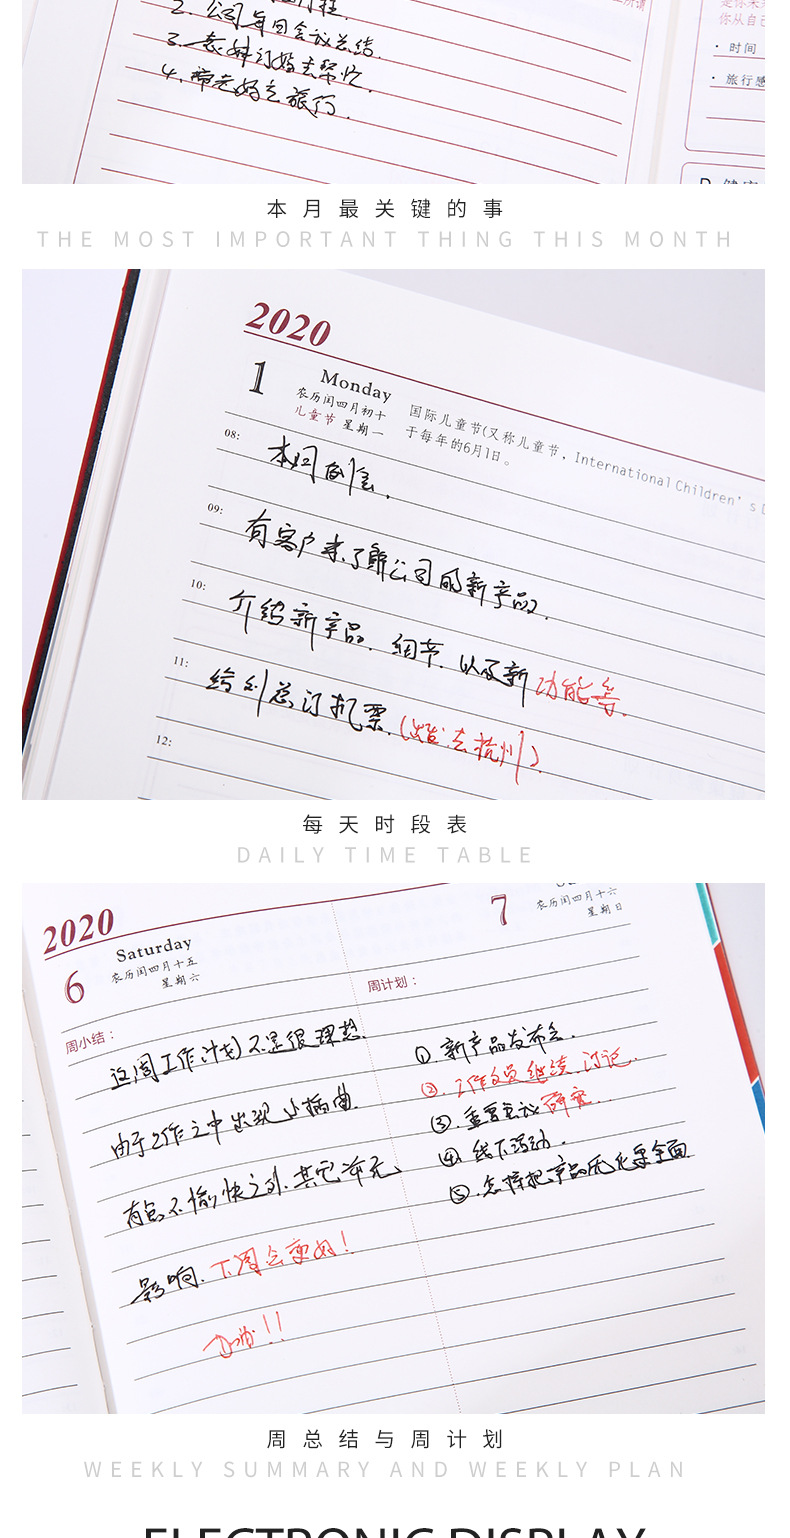 2. 公司年中会议总结.
3. 表妹订婚去帮忙.
4. 带老妈去旅行.
· 时间
· 旅行感
本月最关键的事
THE MOST IMPORTANT THING THIS MONTH
2020
1 Monday
农历闰四月初十
儿童节 星期一
国际儿童节(又称儿童节，International Children's D
于每年的6月1日。
08: 本周例会.
09: 有客户来了解公司的新产品.
10: 介绍新产品. 细节. 以及新功能等.
11: 给刘总订机票.(出发去杭州).
12:
每天时段表
DAILY TIME TABLE
2020
6 Saturday
农历闰四月十五
星期六
周小结：
这周工作计划不是很理想.
由于工作之中出现小插曲.
有点不愉快之外.其它亦无.
影响.下周会变好!
加油!!
7
农历闰四月十六
星期日
周计划：
①.新产品发布会.
②.工作文员继续讨论.
③.重要会议
④.线下活动.
⑤.怎样把产品优化更全面.
周总结与周计划
WEEKLY SUMMARY AND WEEKLY PLAN
ELECTRONIC DISPLAY